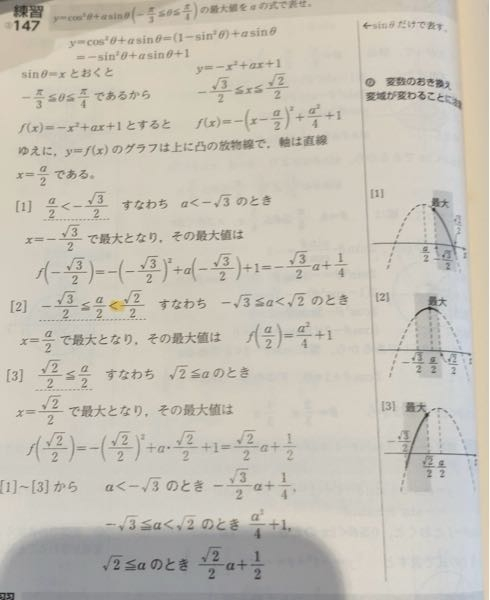 練習
②147
y=cos²θ+a sinθ(-π/3≦θ≦π/4)の最大値をaの式で表せ。
y=cos²θ+a sinθ=(1-sin²θ)+a sinθ
=-sin²θ+a sinθ+1
←sinθだけで表す。
sinθ=xとおくと y=-x²+ax+1
-π/3≦θ≦π/4であるから -√3/2≦x≦√2/2
変数のおき換え
変域が変わることに
f(x)=-x²+ax+1とすると f(x)=-(x-a/2)²+a²/4+1
ゆえに，y=f(x)のグラフは上に凸の放物線で，軸は直線
x=a/2である。
[1] a/2<-√3/2 すなわち a<-√3のとき
x=-√3/2で最大となり，その最大値は
f(-√3/2)=-(-√3/2)²+a(-√3/2)+1=-√3/2a+1/4
[2] -√3/2≦a/2<√2/2 すなわち -√3≦a<√2のとき
x=a/2で最大となり，その最大値は f(a/2)=a²/4+1
[3] √2/2≦a/2 すなわち √2≦aのとき
x=√2/2で最大となり，その最大値は
f(√2/2)=-(√2/2)²+a・√2/2+1=√2/2a+1/2
[1]～[3]から a<-√3のとき -√3/2a+1/4，
-√3≦a<√2のとき a²/4+1，
√2≦aのとき √2/2a+1/2
[1]
最大
a/2 -√3/2 √2/2
[2]
最大
-√3/2 a/2 √2/2
[3] 最大
-√3/2
√2/2 a/2